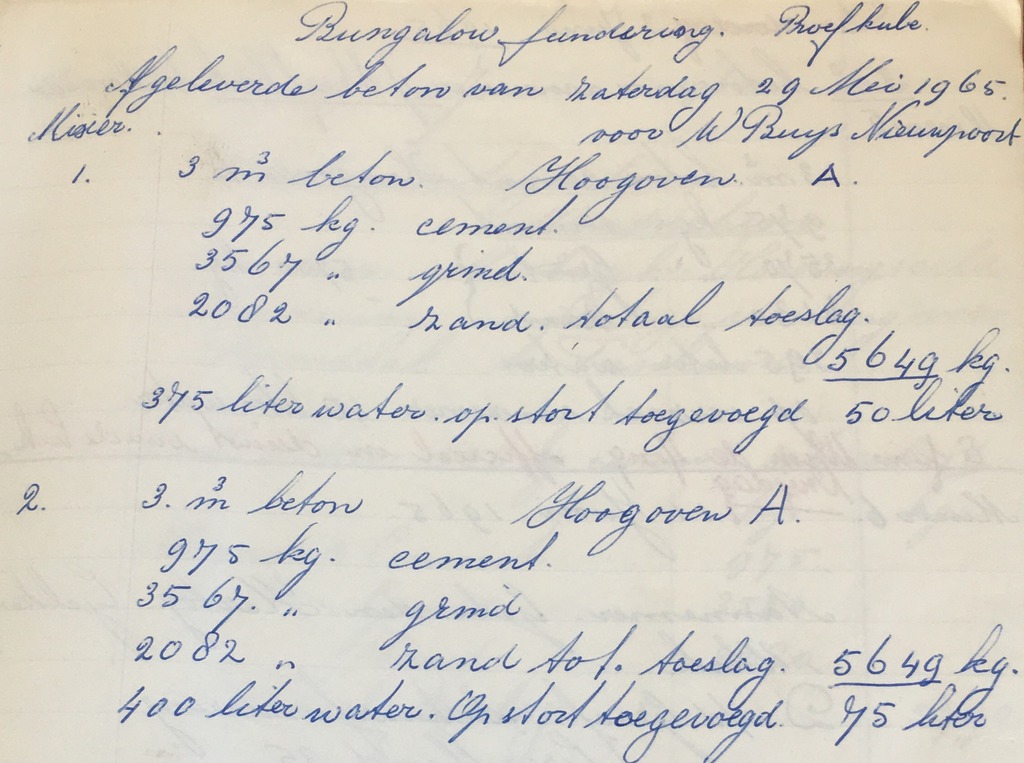 Bungalow fundering. Proefkube.
Afgeleverde beton van zaterdag 29 Mei 1965.
Mixer. voor W Buys Nieuwpoort
1. 3 m³ beton. Hoogoven A.
975 kg. cement.
3567 „ grind.
2082 „ zand. totaal toeslag.
5649 kg.
375 liter water. op stort toegevoegd 50 liter
2. 3. m³ beton Hoogoven A.
975 kg. cement.
3567. „ grind
2082 „ zand tot. toeslag. 5649 kg.
400 liter water. Op stort toegevoegd. 75 liter